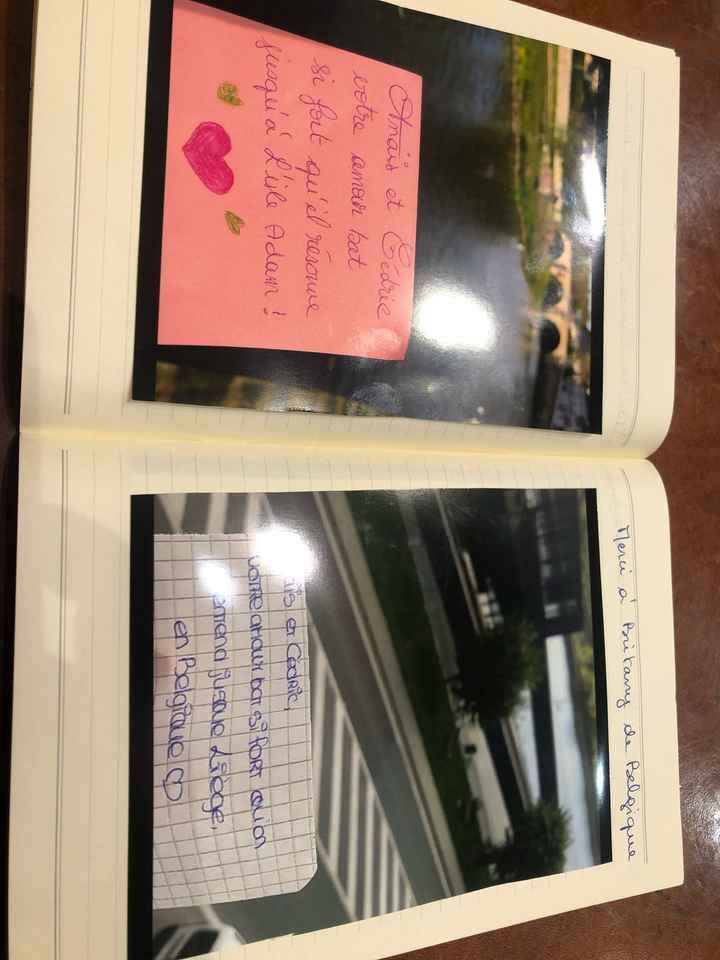 Anaïs et Cédric
votre amour bat
si fort qu'il résonne
jusqu'à L'isle Adam !
Merci à Britany de Belgique
et Cédric,
votre amour bat si fort qu'on
entend jusque Liège,
en Belgique